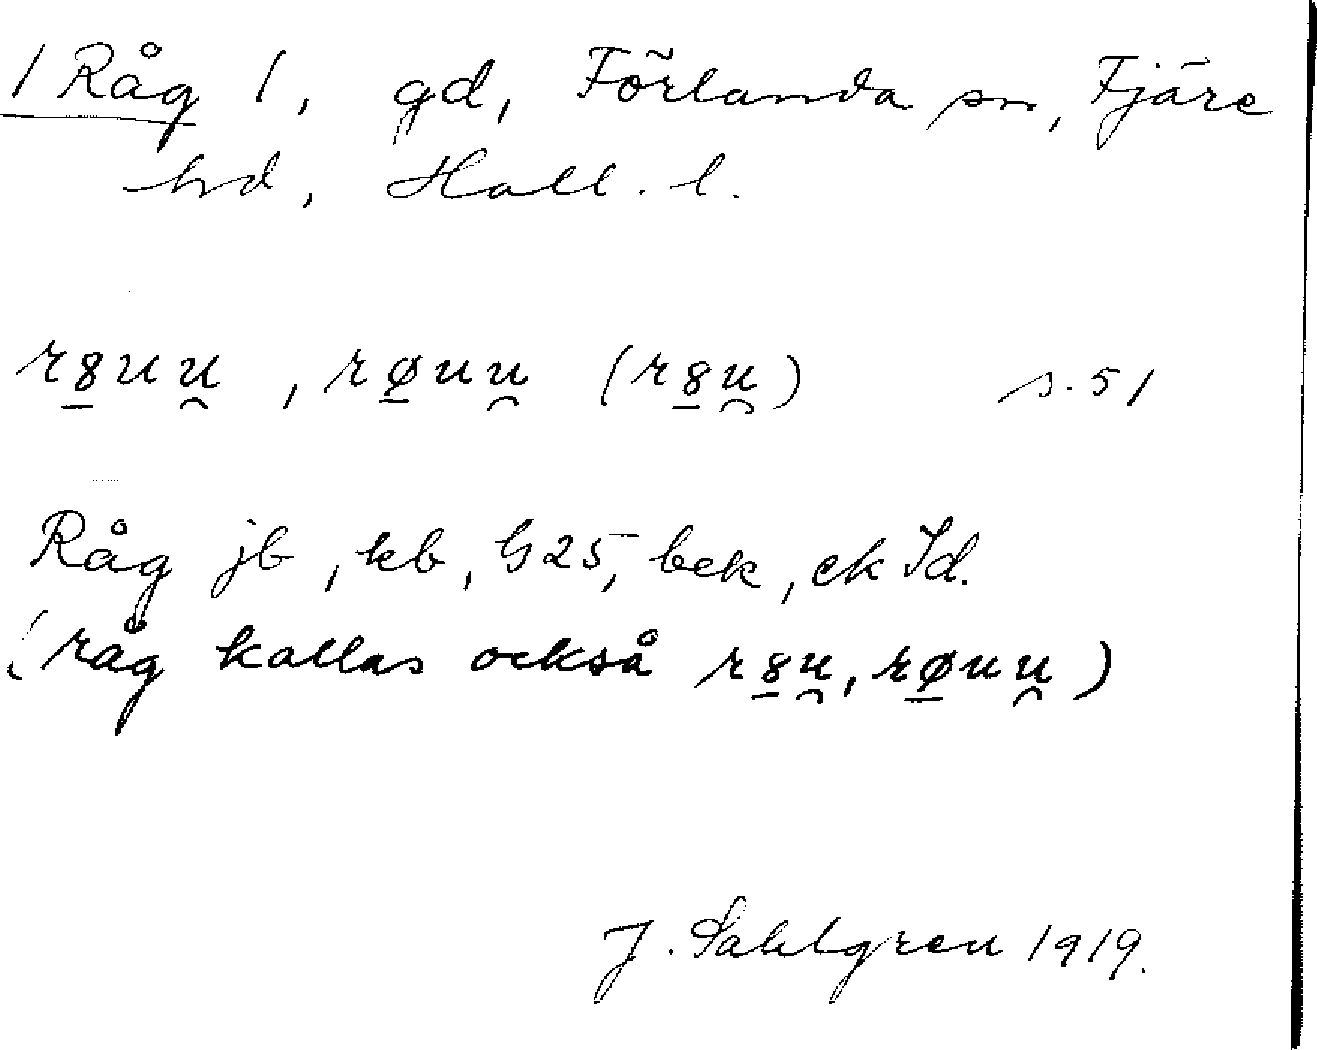 / Råg /, gd, Förlanda sn, Fjäre
hd, Hall. l.
r8uu̯, røuu̯ (r8u̯) s. 51
Råg jb, kb, G25, bek, ek Id.
(råg kallas också r8u̯, røuu̯)
J. Sahlgren 1919.